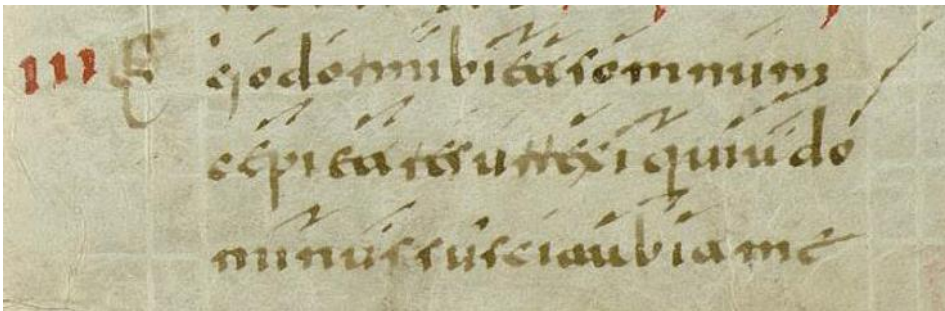 III Ego dormibi et somnum
cepi et resurrexi quia do
minus suscitabit me